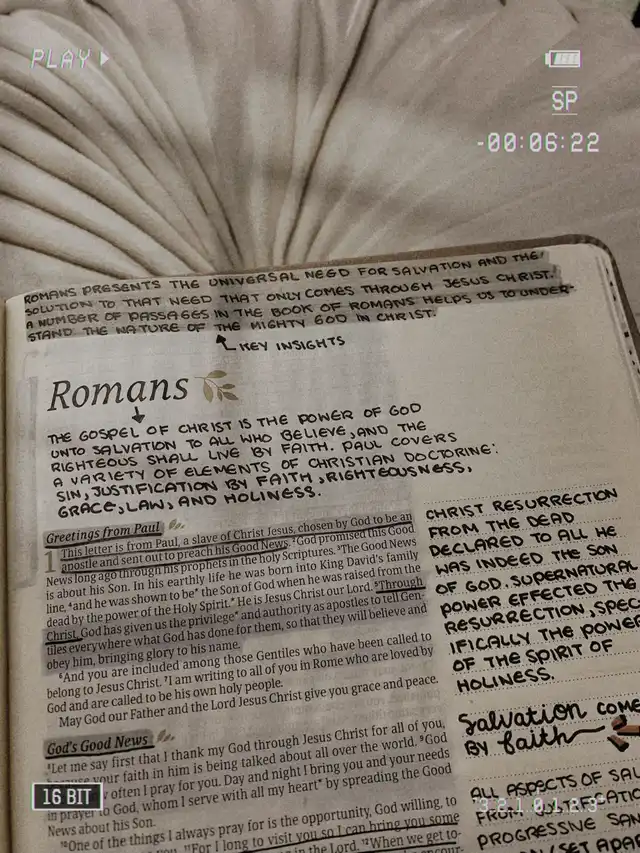 PLAY
SP
-00:06:22
ROMANS PRESENTS THE UNIVERSAL NEED FOR SALVATION AND THE
SOLUTION TO THAT NEED THAT ONLY COMES THROUGH JESUS CHRIST.
A NUMBER OF PASSAGES IN THE BOOK OF ROMANS HELPS US TO UNDER-
STAND THE NATURE OF THE MIGHTY GOD IN CHRIST.
KEY INSIGHTS
Romans
THE GOSPEL OF CHRIST IS THE POWER OF GOD
UNTO SALVATION TO ALL WHO BELIEVE, AND THE
RIGHTEOUS SHALL LIVE BY FAITH. PAUL COVERS
A VARIETY OF ELEMENTS OF CHRISTIAN DOCTORINE:
SIN, JUSTIFICATION BY FAITH, RIGHTEOUSNESS,
GRACE, LAW, AND HOLINESS.
Greetings from Paul
1 This letter is from Paul, a slave of Christ Jesus, chosen by God to be an
apostle and sent out to preach his Good News. ²God promised this Good
News long ago through his prophets in the holy Scriptures. ³The Good News
is about his Son. In his earthly life he was born into King David's family
line, ⁴and he was shown to be* the Son of God when he was raised from the
dead by the power of the Holy Spirit.* He is Jesus Christ our Lord. ⁵Through
Christ, God has given us the privilege* and authority as apostles to tell Gen-
tiles everywhere what God has done for them, so that they will believe and
obey him, bringing glory to his name.
⁶And you are included among those Gentiles who have been called to
belong to Jesus Christ. ⁷I am writing to all of you in Rome who are loved by
God and are called to be his own holy people.
May God our Father and the Lord Jesus Christ give you grace and peace.
God's Good News
⁸Let me say first that I thank my God through Jesus Christ for all of you,
because your faith in him is being talked about all over the world. ⁹God
often I pray for you. Day and night I bring you and your needs
in prayer to God, whom I serve with all my heart* by spreading the Good
News about his Son.
¹⁰One of the things I always pray for is the opportunity, God willing, to
you. ¹¹For I long to visit you so I can bring you some
¹²When we get to-
CHRIST RESURRECTION
FROM THE DEAD
DECLARED TO ALL HE
WAS INDEED THE SON
OF GOD. SUPERNATURAL
POWER EFFECTED THE
RESURRECTION, SPEC
IFICALLY THE POWER
OF THE SPIRIT OF
HOLINESS.
Salvation COME
BY faith
ALL ASPECTS OF SAL
FROM JUSTIFICATIO
PROGRESSIVE SAN
SET APAR
16 BIT